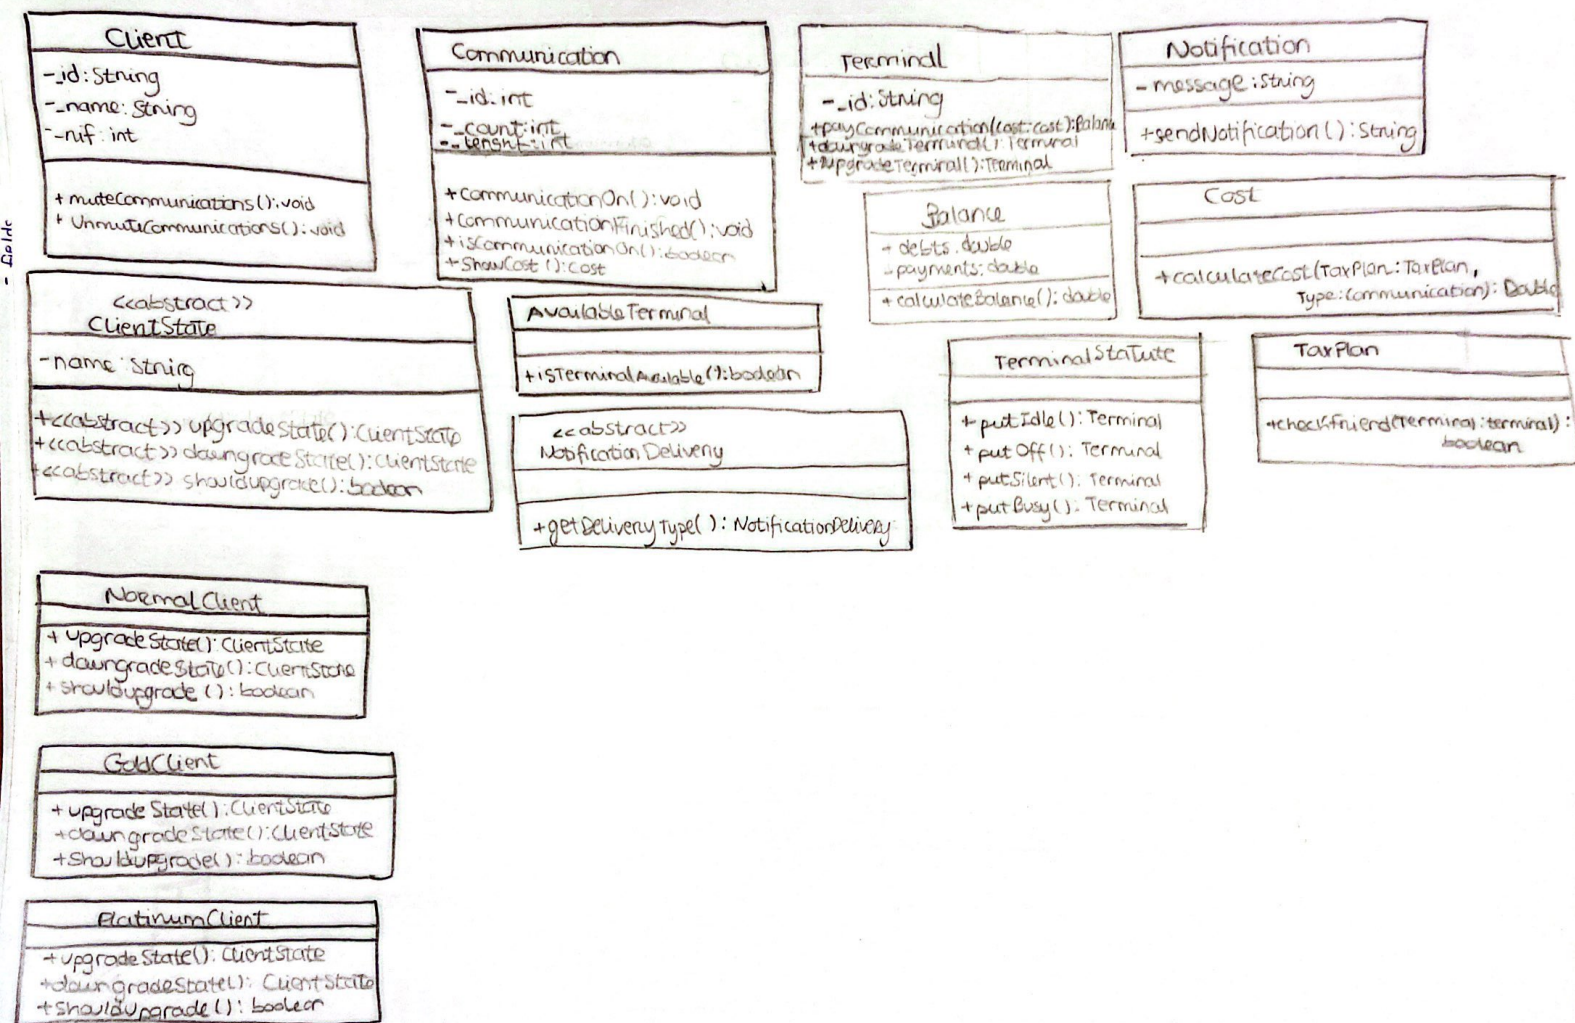 Client
-_id: String
-_name: String
-_nif: int
+ muteCommunications(): void
+ UnmuteCommunications(): void
Communication
-_id: int
-_count: int
-_lenght: int
+ communicationOn(): void
+communicationFinished(): void
+isCommunicationOn(): boolean
+ShowCost(): Cost
Terminal
-_id: String
+payCommunication(cost:cost): Balance
+downgradeTerminal(): Terminal
+upgradeTerminal(): Terminal
Notification
- message: String
+sendNotification(): String
Balance
- debts: double
- payments: double
+ calculateBalance(): double
Cost
+calculateCost(TaxPlan: TaxPlan,
Type: Communication): Double
<<abstract>>
ClientState
-name: String
+<<abstract>> upgradeState(): ClientState
+<<abstract>> downgradeState(): ClientState
+<<abstract>> shouldupgrade(): boolean
AvailableTerminal
+isTerminalAvailable(): boolean
<<abstract>>
NotificationDelivery
+getDeliveryType(): NotificationDelivery
TerminalStatute
+ putIdle(): Terminal
+ putOff(): Terminal
+ putSilent(): Terminal
+ putBusy(): Terminal
TaxPlan
+checkfriend(Terminal: terminal):
boolean
NormalClient
+ upgradeState(): ClientState
+ downgradeState(): ClientState
+ shouldupgrade(): boolean
GoldClient
+ upgradeState(): ClientState
+downgradeState(): ClientState
+Shouldupgrade(): boolean
PlatinumClient
+upgradeState(): ClientState
+downgradeState(): ClientState
+ShouldUpgrade(): boolean